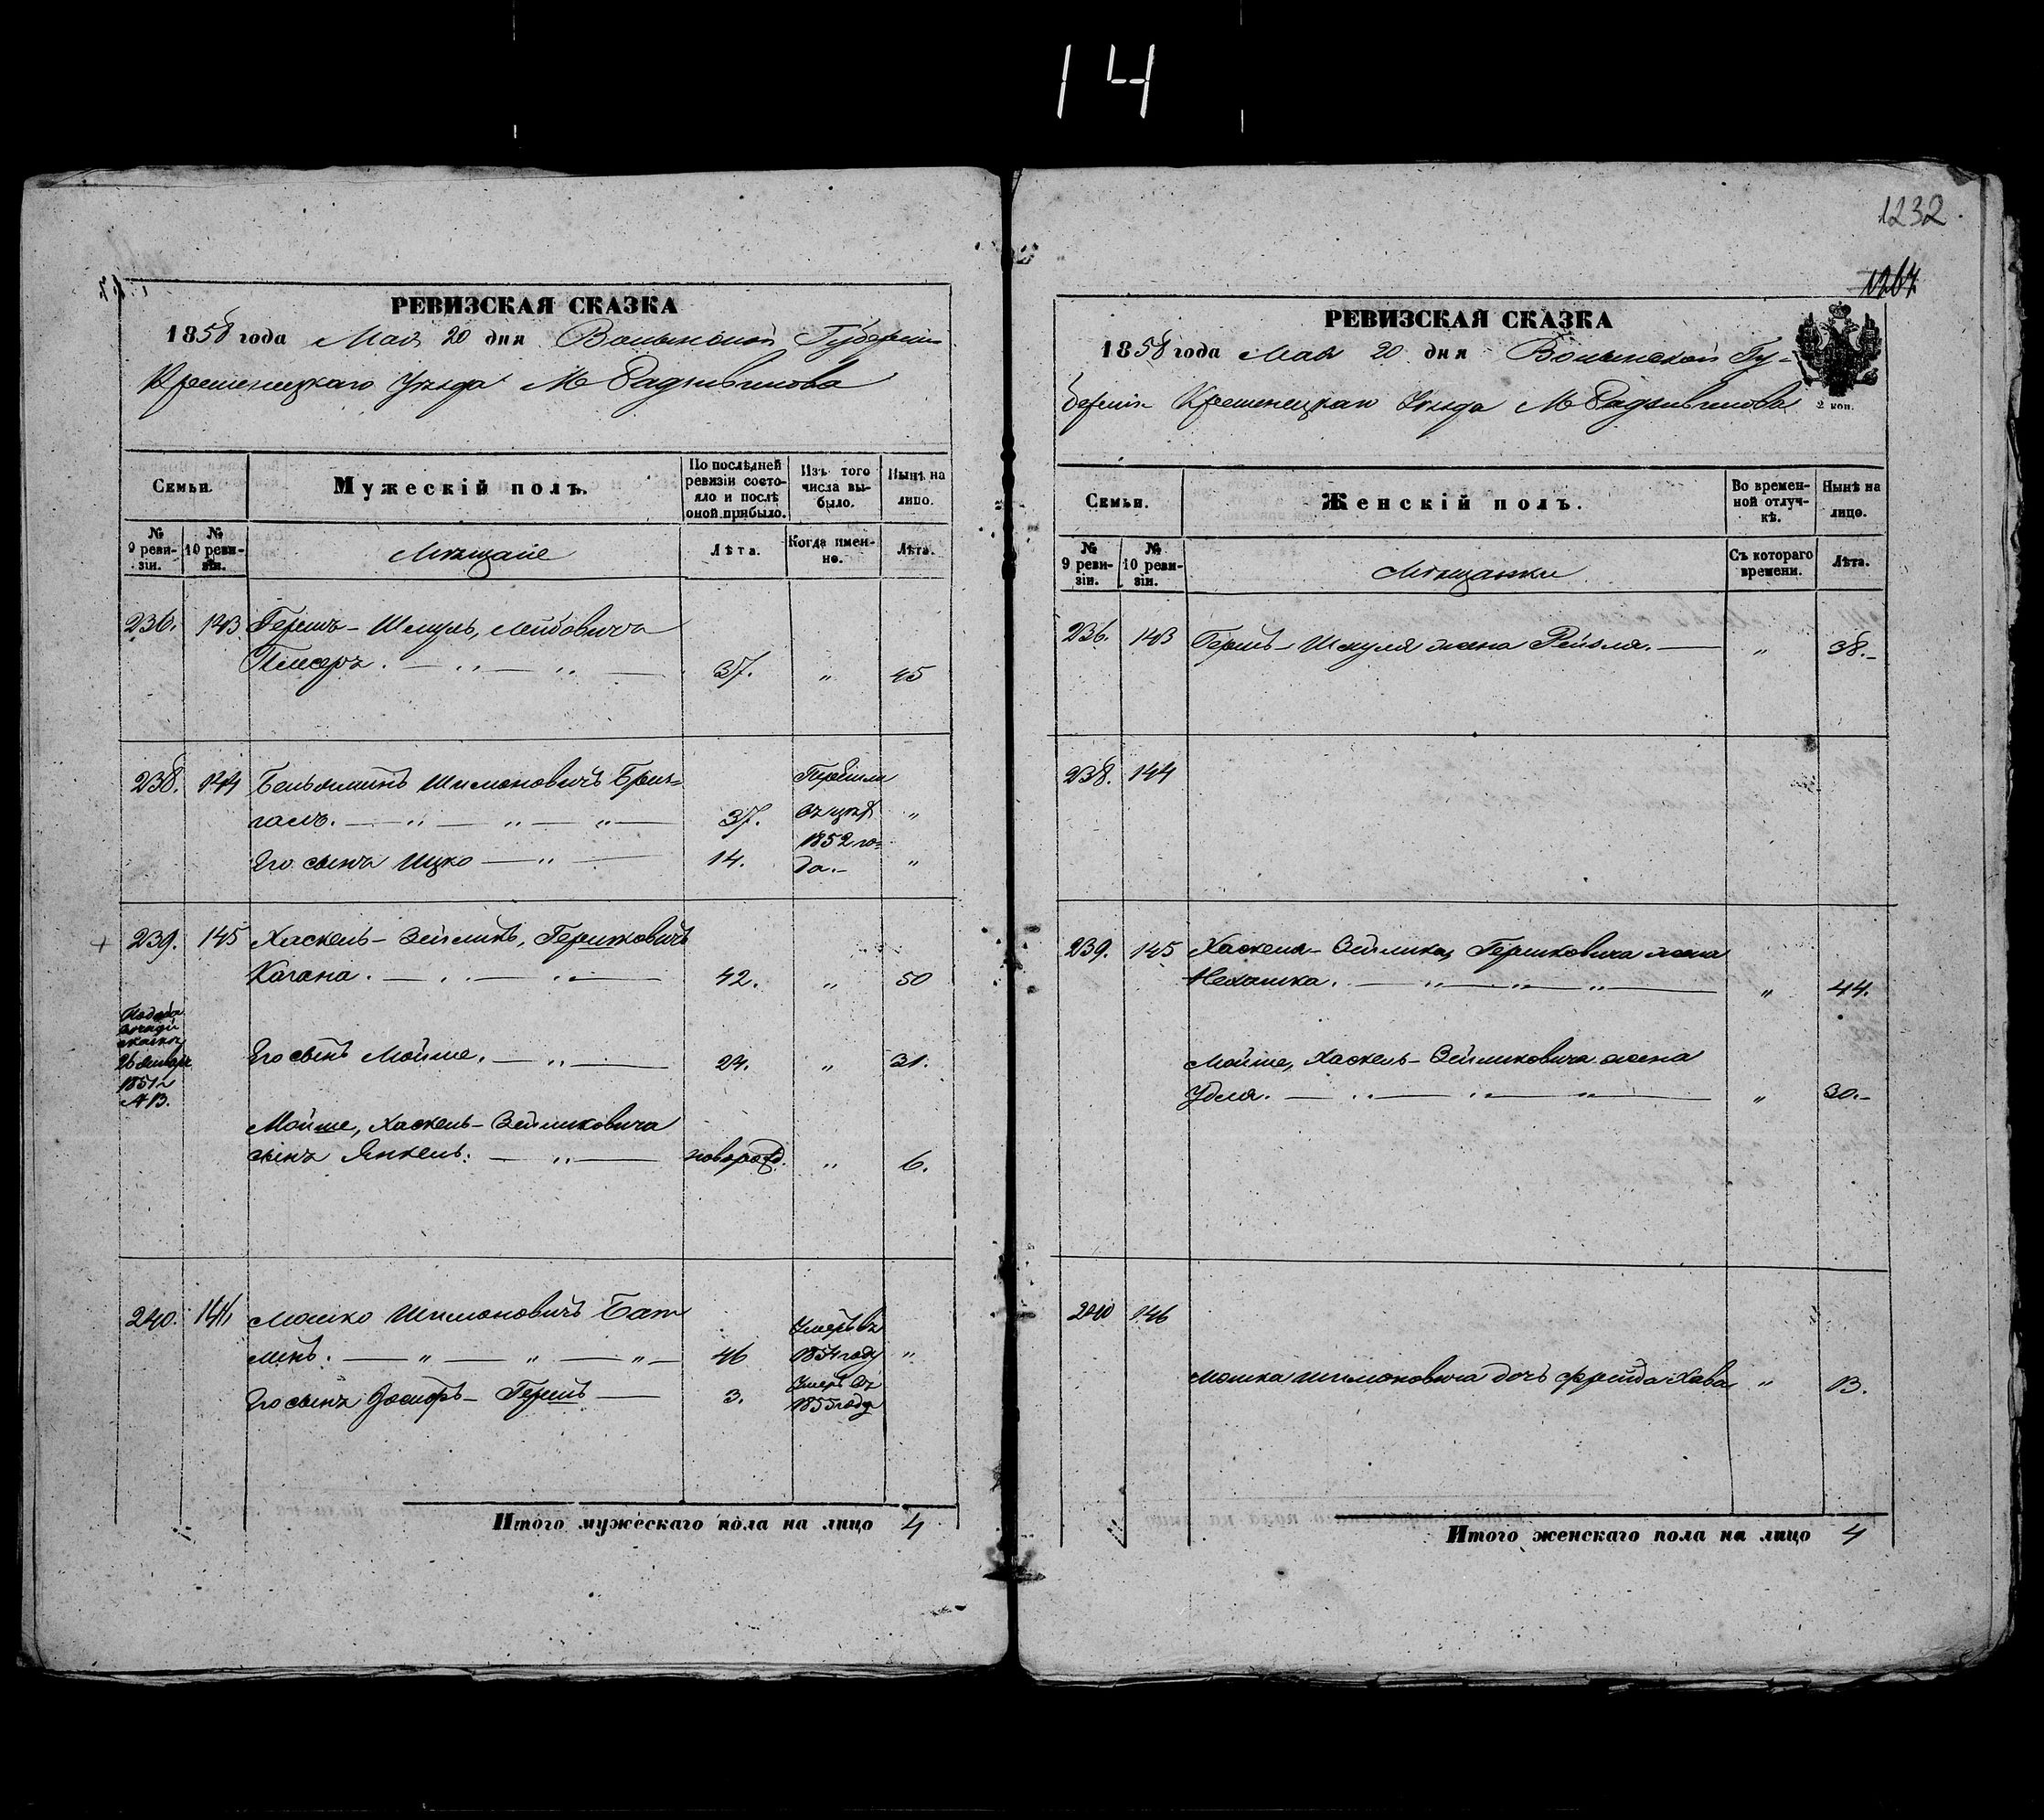 14
1232.
1267
РЕВИЗСКАЯ СКАЗКА
1858 года Мая 20 дня Волынской Губерніи
Кременецкаго Уѣзда М Радзивилова
Семьи.
Мужескій полъ.
По послѣдней ревизіи состояло и послѣ оной прибыло.
Изъ того числа выбыло.
Нынѣ на лицо.
№ 9 ревизіи.
№ 10 ревизіи.
Мѣщане
Лѣта.
Когда именно.
Лѣта.
236. 143 Гершъ-Шмуль, Лейбовичъ
37. „ 45
238. 144 Беньяминъ Шимоновичъ
37. „
1852 го-
Его сынъ Ицко 14. да. „
239. 145 Хаскель-Зейликъ, Гершковичъ
Кагана. 42. „ 50
1851
Его сынъ Мойше. 24. „ 31.
Мойше, Хаскель-Зейликовича
сынъ Янкель. новорожд. „ 6.
240. 146 Мошко Шимоновичъ Бат
Умеръ въ
46 1854 году „
Его сынъ Гершъ 3. Умеръ въ
1855 году
Итого мужескаго пола на лицо 4
РЕВИЗСКАЯ СКАЗКА
1858 года Мая 20 дня Волынской Гу-
берніи Кременецкаго Уѣзда М Радзивилова
2 коп.
Семьи.
Женскій полъ.
Во временной отлучкѣ.
Нынѣ на лицо.
№ 9 ревизіи.
№ 10 ревизіи.
Мѣщанки
Съ котораго времени.
Лѣта.
236. 143 Гершъ-Шмуля жена Рейзля. „ 38.
238. 144
239. 145 Хаскеля-Зейлика, Гершковича жена
Нехамка. „ 44.
Мойше, Хаскель-Зейликовича жена
Удля. „ 30.
240 146
Мошка Шимоновича дочь Фрейда Хава „ 13.
Итого женскаго пола на лицо 4